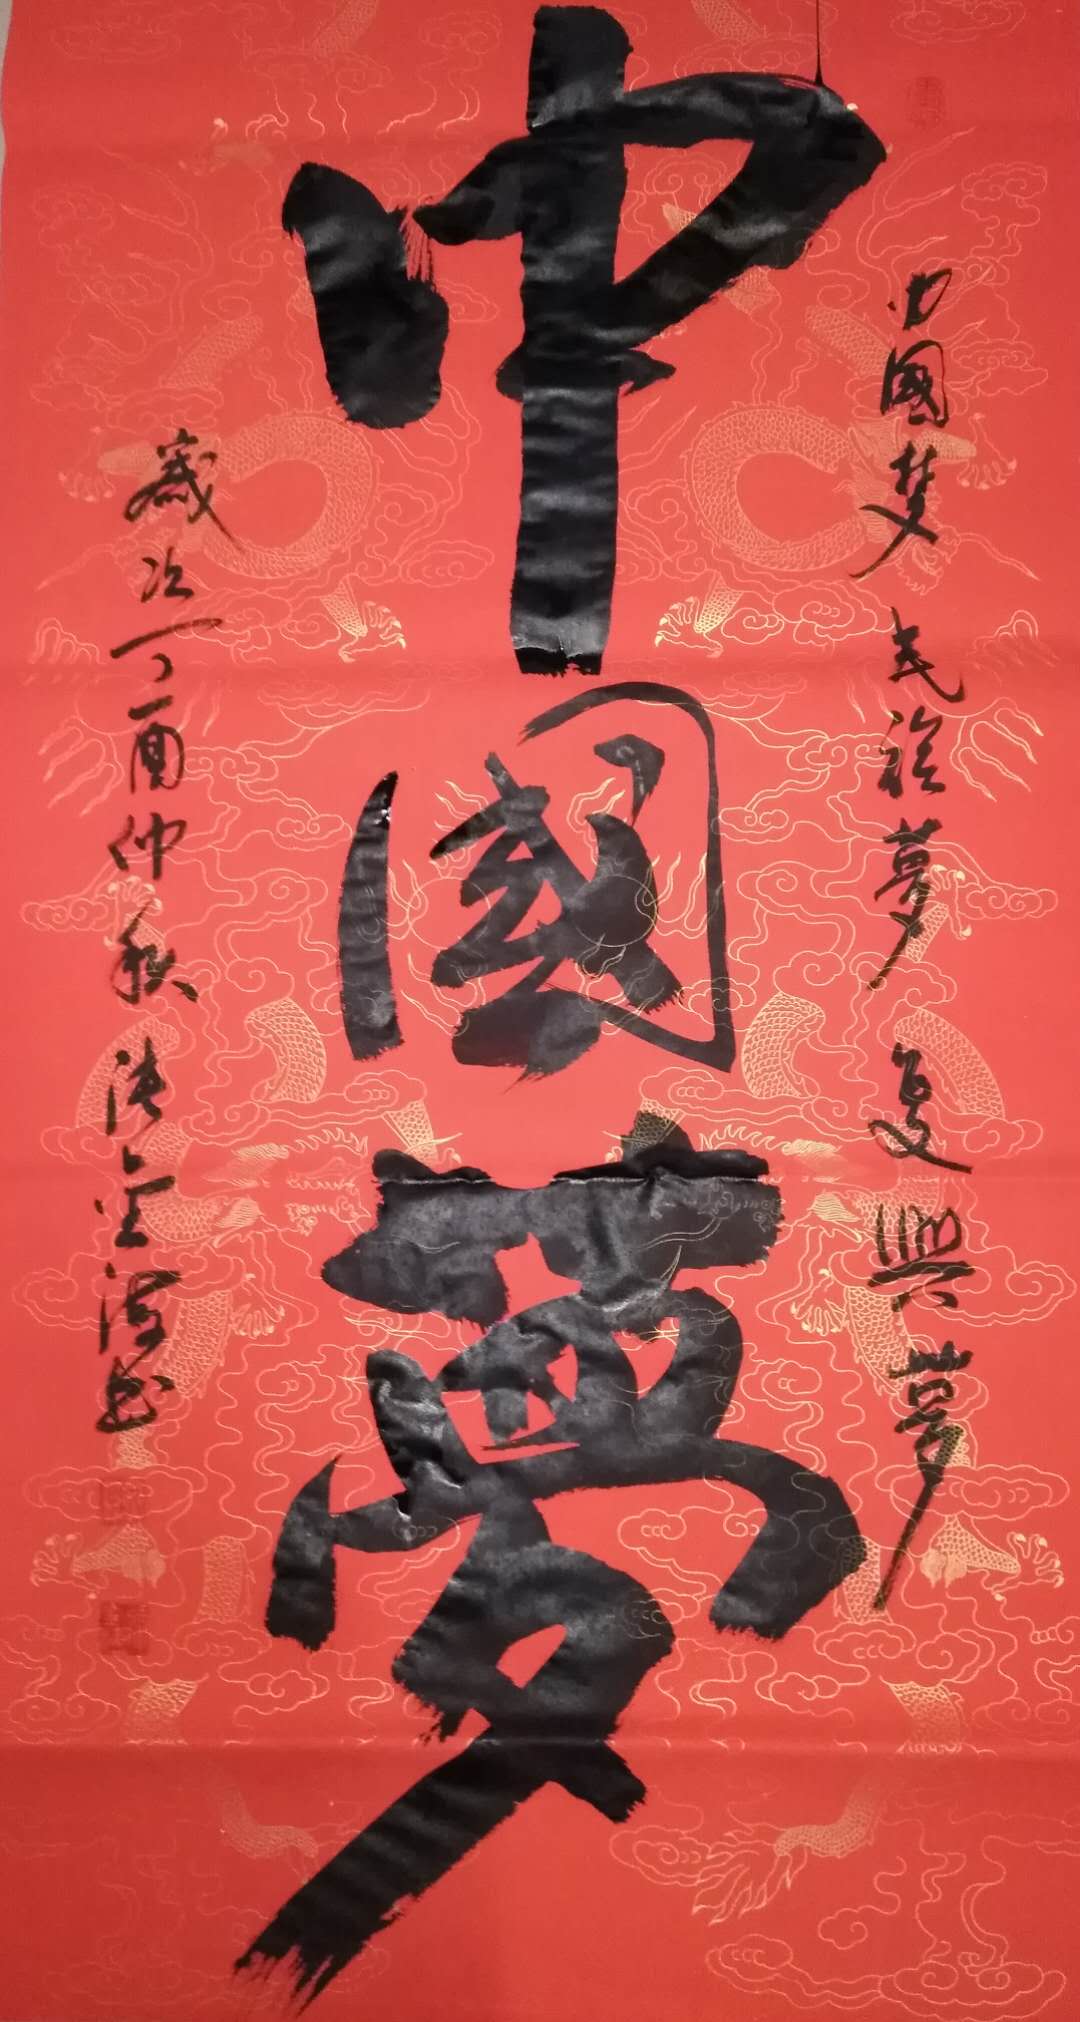 中國梦 民族夢 复興夢
中國夢
歲次丁酉仲秋 金 书